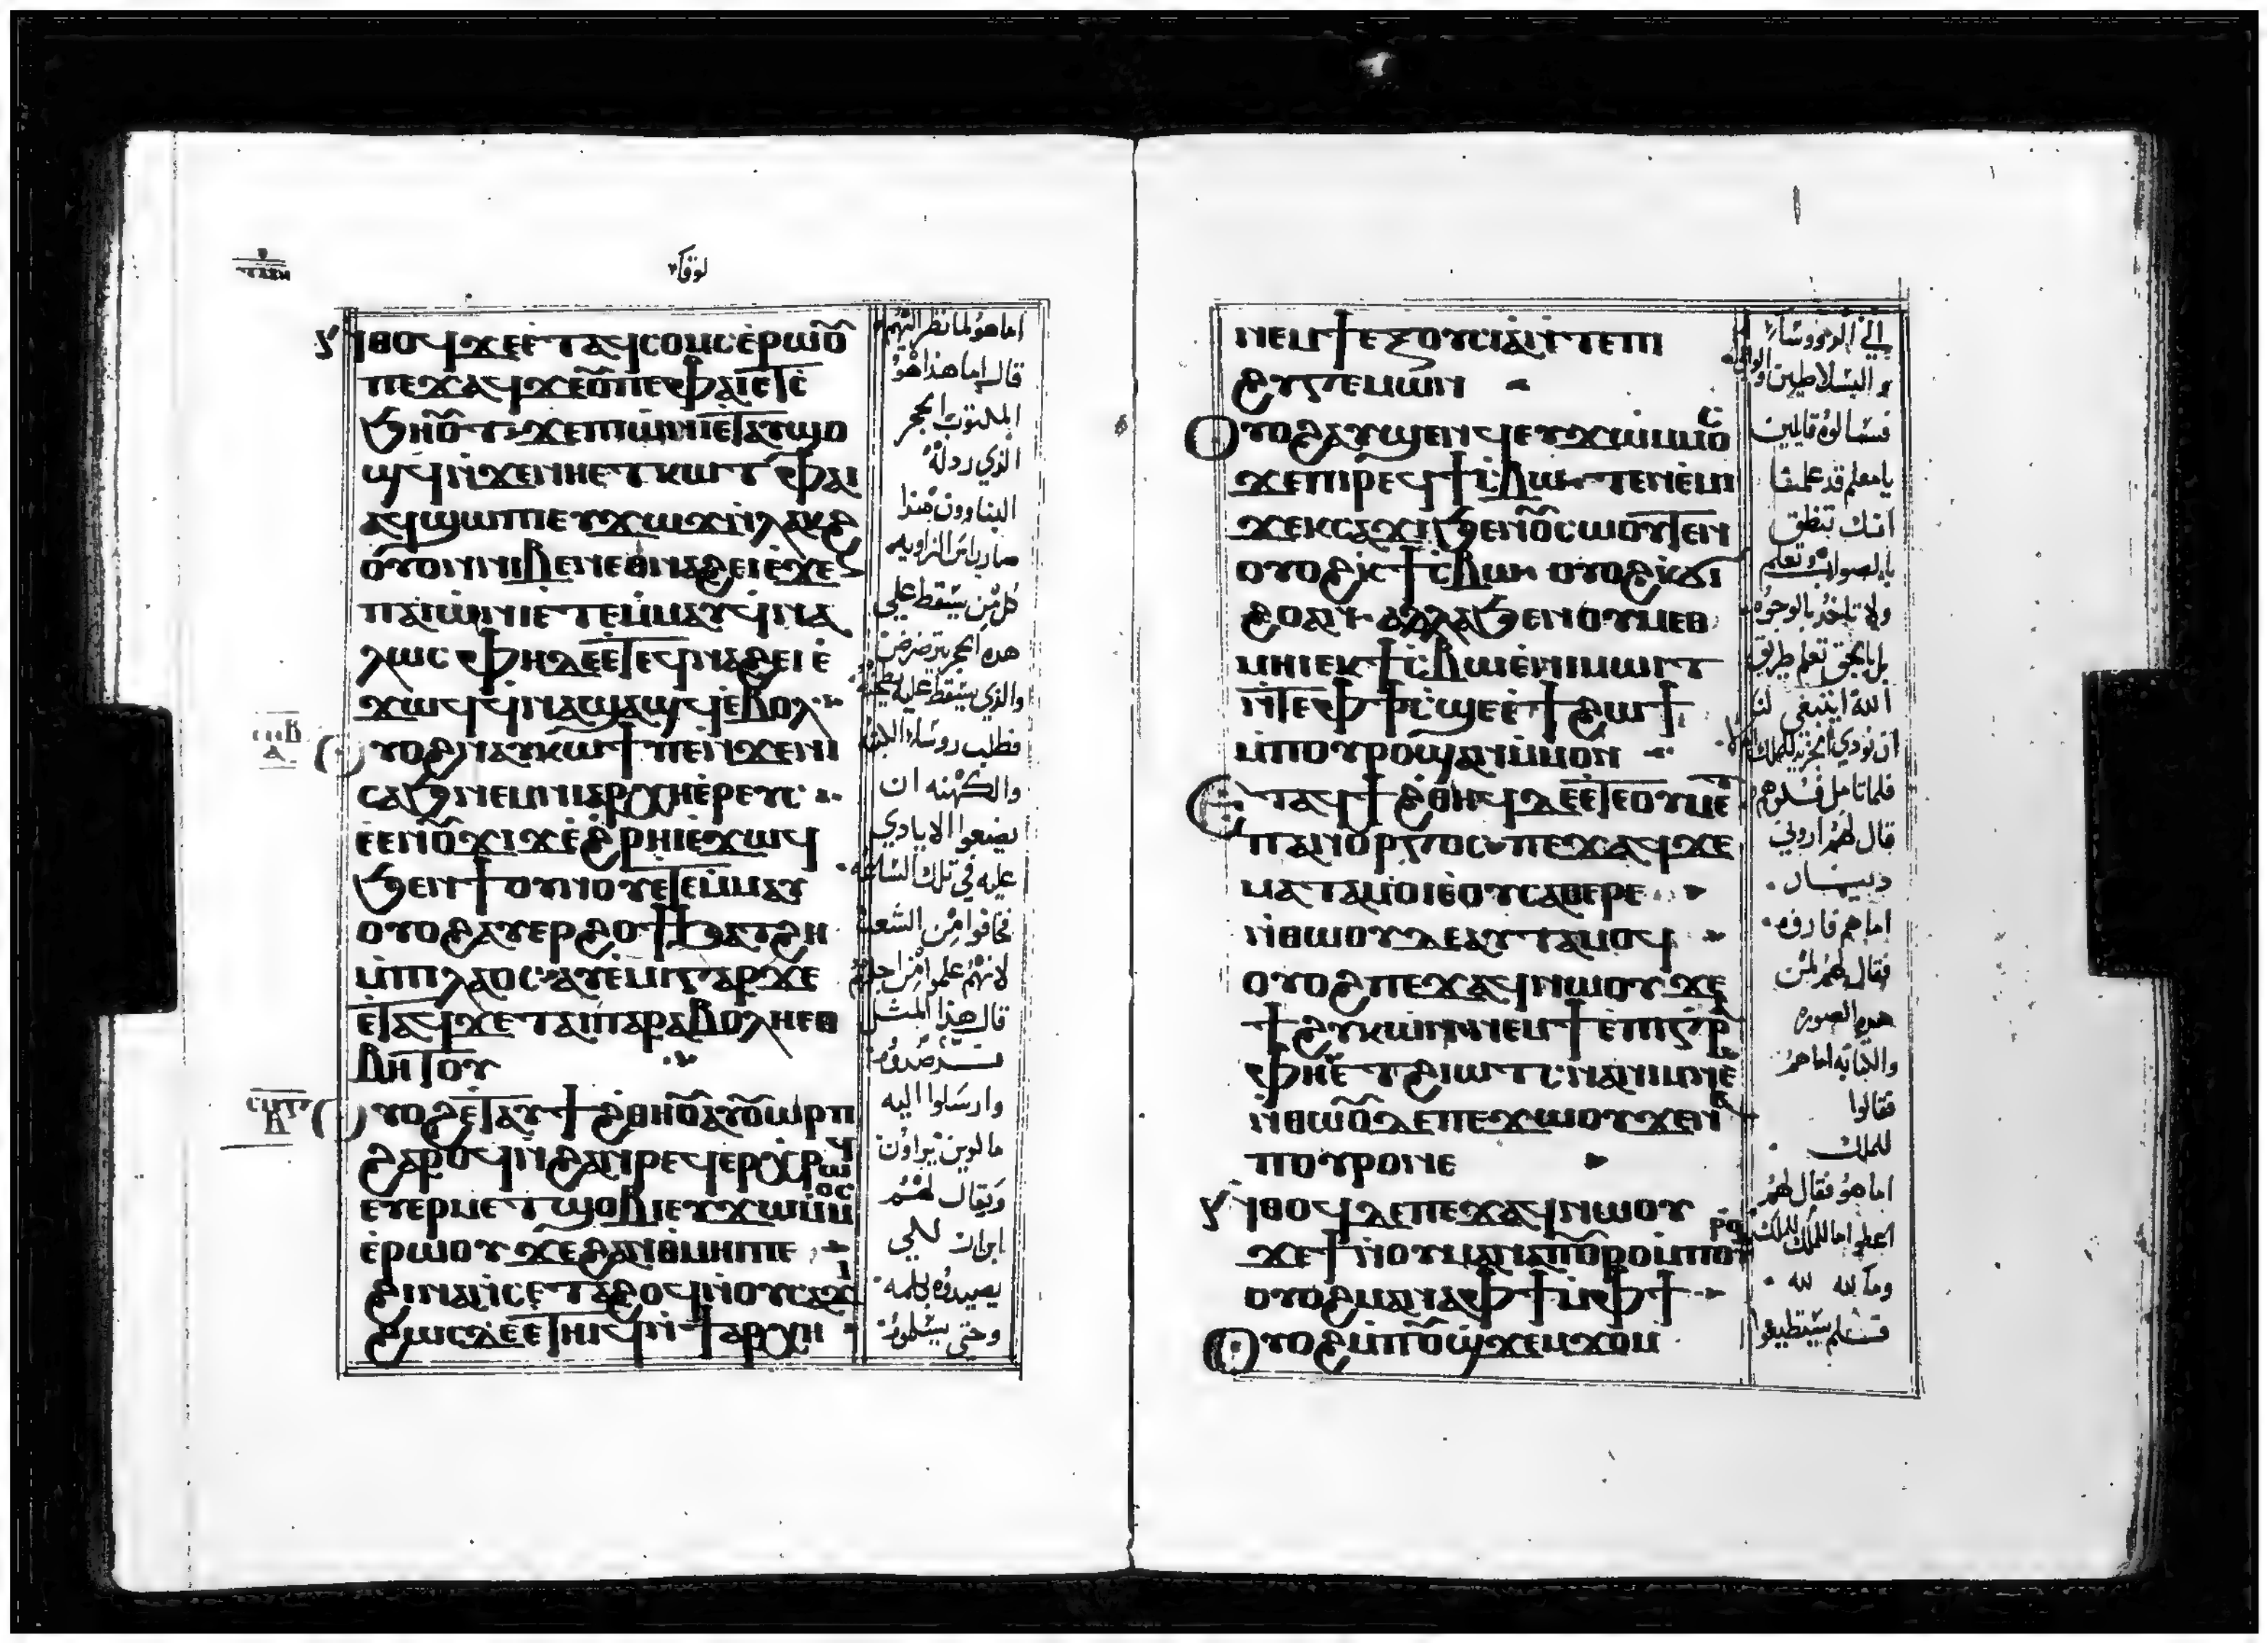 لوقا
ⲛ̀ⲑⲟϥ ϫⲉ ⲉ̀ⲧⲁϥⲥⲟⲙⲥ ⲉ̀ⲣⲱⲟ̅ⲩ̅
ⲡⲉϫⲁϥ ϫⲉ ⲟ̅ⲩ̅ ⲡⲉ ⲫⲁⲓ ⲉⲧⲥ̀
ϧⲏⲟ̅ⲩ̅ⲧ ϫⲉ ⲡⲓⲱ̀ⲛⲓ ⲉ̀ⲧⲁⲩϣⲟ
ϣϥ ⲛ̀ϫⲉ ⲛⲏ ⲉⲧⲕⲱⲧ ⲫⲁⲓ
ⲁϥϣⲱⲡⲓ ⲉⲩϫⲱϫ ⲛ̀ⲗⲁⲕϩ
ⲟ̀ⲩⲟⲛ ⲛⲓⲃⲉⲛ ⲉⲑⲛⲁϩⲉⲓ ⲉ̀ϫⲉⲛ
ⲡⲁⲓⲱ̀ⲛⲓ ⲉⲧⲉⲙ̀ⲙⲁⲩ ϥⲛⲁ
ⲗⲱⲥ ⲫⲏ ⲇⲉ ⲉ̀ⲧⲉϥⲛⲁϩⲉⲓ ⲉ̀
ϫⲱϥ ϥ̀ⲛⲁϣⲁϣϥ ⲉ̀ⲃⲟⲗ
ⲥⲡⲃ ⲁ ⲟⲩⲟϩ ⲛⲁⲩⲕⲱϯ ⲡⲉ ⲛ̀ϫⲉ ⲛⲓ
ⲥⲁϧ ⲛⲉⲙ ⲛⲓⲁⲣⲭⲏⲉ̀ⲣⲉⲩⲥ
ⲉ̀ⲉⲛⲟ̅ⲩ̅ϫⲓϫ ⲉ̀ϩⲣⲏⲓ ⲉ̀ϫⲱϥ
ϧⲉⲛ ϯⲟⲩⲛⲟⲩ ⲉⲧⲉⲙ̀ⲙⲁⲩ
ⲟⲩⲟϩ ⲁⲩⲉⲣϩⲟϯ ϧⲁⲧϩⲏ
ⲙ̀ⲡⲗⲁⲟⲥ ⲁⲩⲉ̀ⲙⲓ ⲅⲁⲣ ϫⲉ
ⲉ̀ⲧⲁϥϫⲉ ⲧⲁⲓⲡⲁⲣⲁⲃⲟⲗⲏ ⲉⲑ
ⲃⲏⲧⲟⲩ
ⲥⲡⲅ ⲃ ⲟⲩⲟϩ ⲉ̀ⲧⲁⲩϯϩⲑⲏⲟ̅ⲩ̅ ⲁⲩⲟ̅ⲩ̅ⲱⲣⲡ
ϩⲁⲣⲟϥ ⲛ̀ϩⲁⲛⲣⲉϥⲉⲣⲭⲣⲱϥ
ⲉⲩⲉⲣⲙⲉⲧϣⲟⲃⲓ ⲉⲩϫⲱⲙ̀ⲙⲟⲥ
ⲉ̀ⲣⲱⲟⲩ ϫⲉ ϩⲁⲛⲑⲙⲏⲓ ⲡⲉ
ϩⲓⲛⲁ ⲛ̀ⲥⲉⲧⲁϩⲟϥ ⲛ̀ⲟⲩⲥⲁϫⲓ
ϩⲱⲥⲇⲉ ⲉ̀ⲧⲏⲓϥ ⲛ̀ϯⲁⲣⲭⲏ
اما هو لما نظر اليهم
قال اما هذا هو
المكتوب الحجر
الذي رذله
البناوون هذا
صار راس الزاويه
كل من يسقط علي
هذه الحجر يترضرض
والذي يسقط عليه يطحنه
فطلب روساء
والكهنه ان
يضعوا الايادي
عليه في تلك الساعه
فخافوا من الشعب
لانهم علموا من اجلهم
قال هذا المثل
وارسلوا اليه
يصيدوه بكلمه
وحتي يسلموه
ⲛⲉⲙ ϯⲉⲝⲟⲩⲥⲓⲁ ⲛ̀ⲧⲉ ⲡⲓ
ϩⲩⲅⲉⲙⲱⲛ
ⲟⲩⲟϩ ⲁⲩϣⲉⲛϥ ⲉⲩϫⲱⲙ̀ⲙⲟⲥ
ϫⲉ ⲡⲓⲣⲉϥϯⲥ̀ⲃⲱ ⲧⲉⲛⲉ̀ⲙⲓ
ϫⲉ ⲕⲥⲁϫⲓ ϧⲉⲛ ⲟ̅ⲩ̅ⲥⲱⲟⲩⲧⲉⲛ
ⲟⲩⲟϩ ⲕ̀ϯⲥ̀ⲃⲱ ⲟⲩⲟϩ ⲕ̀ϭⲓ
ϩⲟ ⲁⲛ ⲁⲗⲗⲁ ϧⲉⲛ ⲟⲩⲙⲉⲑ
ⲙⲏⲓ ⲉⲕϯⲥ̀ⲃⲱ ⲉ̀ⲡⲓⲙⲱⲓⲧ
ⲛ̀ⲧⲉ ⲫϯ ⲥ̀ϣⲉ ⲉ̀ϯϩⲱϯ
ⲙ̀ⲡⲟⲩⲣⲟ ϣⲁⲛ ⲙ̀ⲙⲟⲛ
ⲉⲧⲁϥϯϩⲑⲏϥ ⲇⲉ ⲉ̀ⲧⲉⲟⲩⲙⲉⲧ
ⲡⲁⲛⲟⲩⲣⲅⲟⲥ ⲡⲉϫⲁϥ ϫⲉ
ⲙⲁⲧⲁⲙⲟⲓ ⲉ̀ⲟⲩⲥⲁⲑⲉⲣⲉ
ⲛ̀ⲑⲱⲟⲩ ⲇⲉ ⲁⲩⲧⲁⲙⲟϥ
ⲟⲩⲟϩ ⲡⲉϫⲁϥ ⲛⲱⲟⲩ ϫⲉ
ϯϩⲩⲕⲱⲛ ⲛⲉⲙ ϯⲉⲡⲓⲅⲣ
ⲫⲏ ⲉ̀ⲧϩⲓⲱⲧⲥ ⲛⲁⲛⲓⲙ ⲛⲉ
ⲛ̀ⲑⲱⲟ̅ⲩ̅ ⲇⲉ ⲡⲉϫⲱⲟⲩ ϫⲉ ⲛⲁ
ⲡⲟⲩⲣⲟ ⲛⲉ
ⲛ̀ⲑⲟϥ ⲇⲉ ⲡⲉϫⲁϥ ⲛⲱⲟⲩ
ϫⲉ ϯ ⲛ̀ⲟⲩ ⲙⲁ ⲛⲁ ⲡⲟ̅ⲩ̅ⲣⲟ ⲙ̀ⲡⲟⲩⲣⲟ
ⲟⲩⲟϩ ⲙⲁ ⲛⲁ ⲫϯ ⲙ̀ⲫϯ
ⲟⲩⲟϩ ⲙ̀ⲡⲟ̅ⲩ̅ϣϫⲉⲙϫⲟⲙ
فسالوه قايلين
يا معلم قد علمنا
انك تنطق
بالصواب وتعلم
ولا تاخذ بالوجوه
بل بالحق تعلم طريق
الله اينبغي لنا
قال لهم اروني
دينار
اما هم فاروه
فقال لهم لمن
هذه الصوره
والكتابه اما هم
فقالوا
للملك
اما هو فقال لهم
اعطوا ما للملك للملك
وما لله لله
فلم يستطيعوا